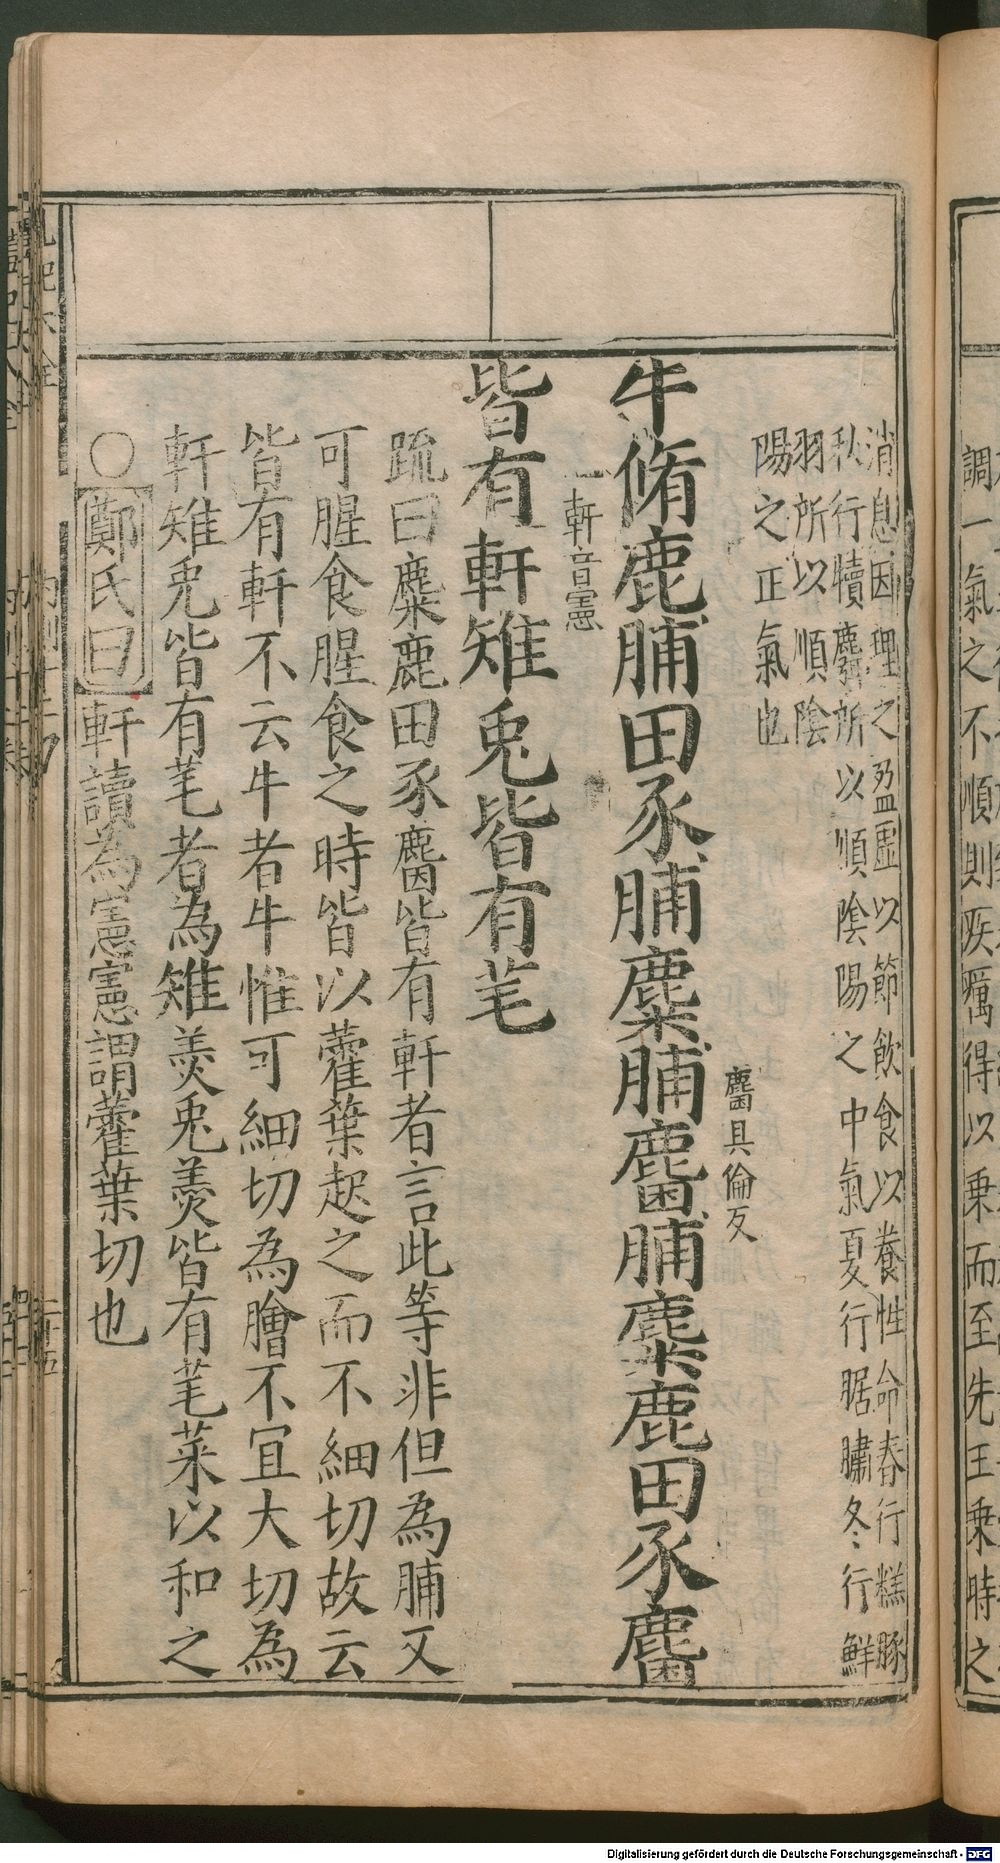 調一氣之不順則疾癘得以乗而至先王乗時之
消息因理之盈虛以節飲食以養性命春行糕豚
秋行犢麛所以順陰陽之中氣夏行腒鱐冬行鮮
羽所以順陰
陽之正氣也
麕具倫反
牛脩鹿脯田豕脯麋脯麕脯麋鹿田豕麕
軒音憲
皆有軒雉兎皆有芼
疏曰麋鹿田豕麕皆有軒者言此等非但為脯又
可腥食腥食之時皆以藿葉起之而不細切故云
皆有軒不云牛者牛惟可細切為膾不宜大切為
軒雉兎皆有芼者為雉羮兎羮皆有芼菜以和之
○鄭氏曰軒讀為憲憲謂藿葉切也
Digitalisierung gefördert durch die Deutsche Forschungsgemeinschaft - DFG